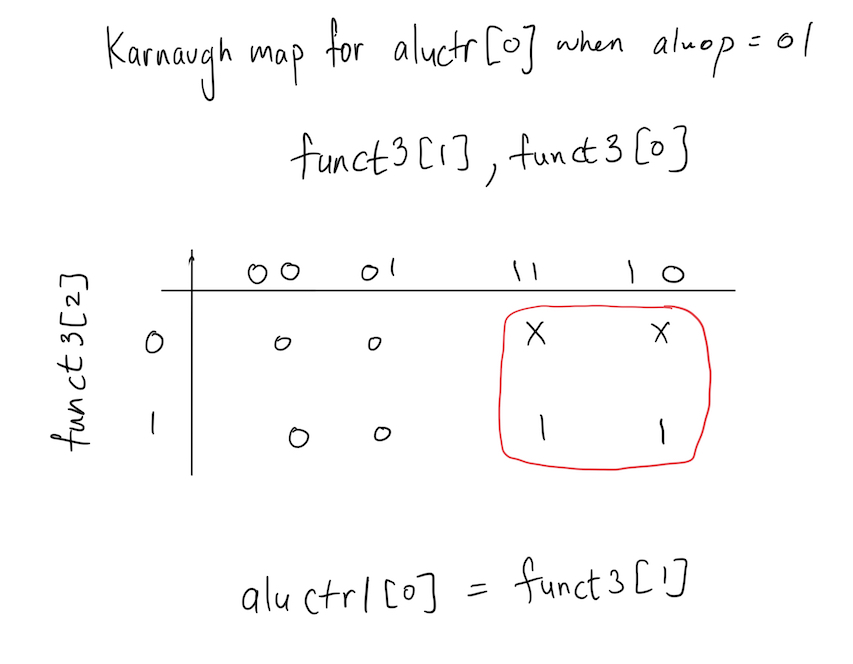 Karnaugh map for aluctr[0] when aluop = 01
funct3[1], funct3[0]
funct3[2]
00 01 11 10
0 0 0 X X
1 0 0 1 1
aluctrl[0] = funct3[1]